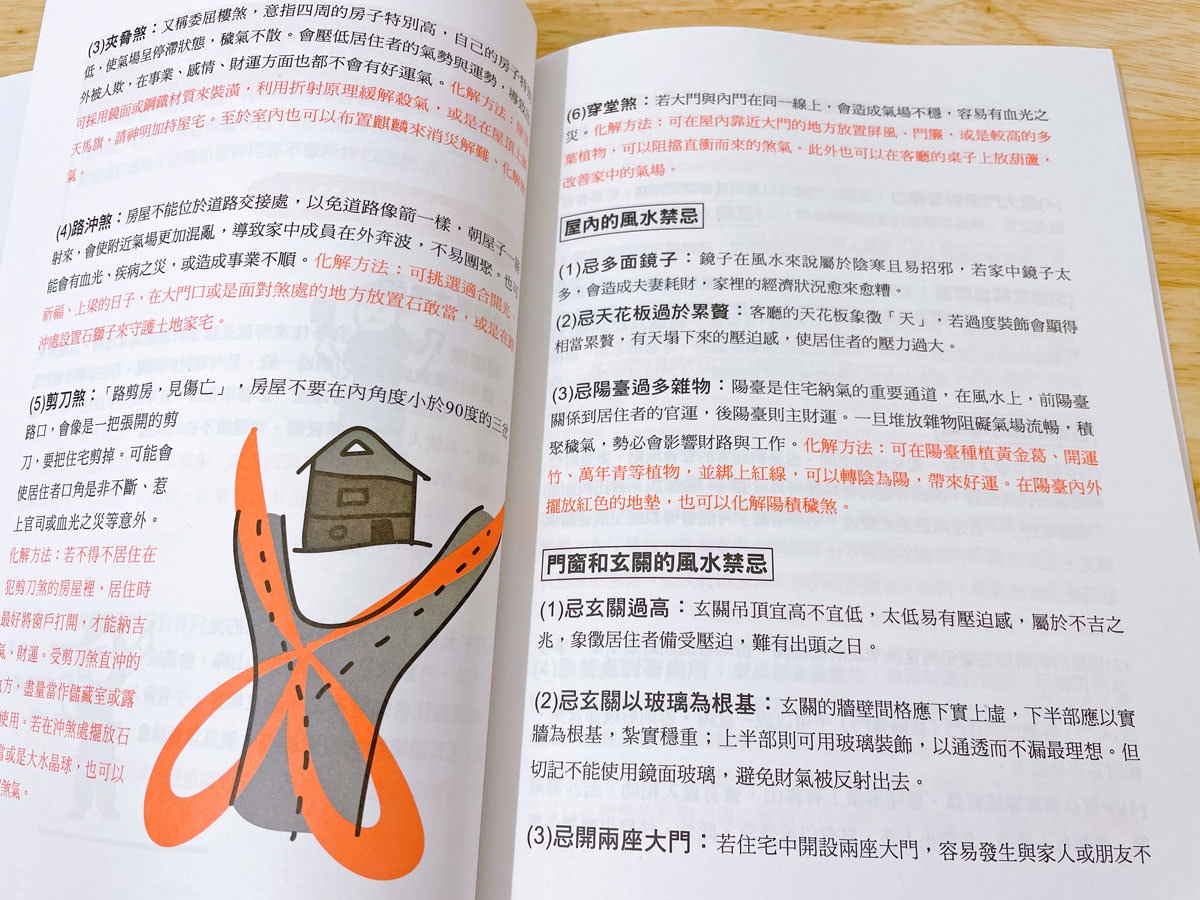 (3)夾脅煞：又稱委屈樓煞，意指四周的房子特別高，自己的房子特
低，使氣場呈停滯狀態，穢氣不散。會壓低居住者的氣勢與運勢，導致
外被人欺，在事業、感情、財運方面也都不會有好運氣。化解方法：
可採用鏡面或鋼鐵材質來裝潢，利用折射原理緩解殺氣，或是在屋頂上
天馬旗，請神明加持屋宅。至於室內也可以布置麒麟來消災解難、化解
氣。
(4)路沖煞：房屋不能位於道路交接處，以免道路像箭一樣，朝屋子一
射來，會使附近氣場更加混亂，導致家中成員在外奔波，不易團聚。也
能會有血光、疾病之災，或造成事業不順。化解方法：可挑選適合開光、
祈福、上梁的日子，在大門口或是面對煞處的地方放置石敢當，或是在
沖處設置石獅子來守護土地家宅。
(5)剪刀煞：「路剪房，見傷亡」，房屋不要在內角度小於90度的三岔
路口，會像是一把張開的剪
刀，要把住宅剪掉。可能會
使居住者口角是非不斷、惹
上官司或血光之災等意外。
化解方法：若不得不居住在
犯剪刀煞的房屋裡，居住時
最好將窗戶打開，才能納吉
氣、財運。受剪刀煞直沖的
地方，盡量當作儲藏室或露
使用。若在沖煞處擺放石
當或是大水晶球，也可以
煞氣。
(6)穿堂煞：若大門與內門在同一線上，會造成氣場不穩，容易有血光之
災。化解方法：可在屋內靠近大門的地方放置屏風、門簾，或是較高的多
葉植物，可以阻擋直衝而來的煞氣。此外也可以在客廳的桌子上放葫蘆，
改善家中的氣場。
屋內的風水禁忌
(1)忌多面鏡子：鏡子在風水來說屬於陰寒且易招邪，若家中鏡子太
多，會造成夫妻耗財，家裡的經濟狀況愈來愈糟。
(2)忌天花板過於累贅：客廳的天花板象徵「天」，若過度裝飾會顯得
相當累贅，有天塌下來的壓迫感，使居住者的壓力過大。
(3)忌陽臺過多雜物：陽臺是住宅納氣的重要通道，在風水上，前陽臺
關係到居住者的官運，後陽臺則主財運。一旦堆放雜物阻礙氣場流暢，積
聚穢氣，勢必會影響財路與工作。化解方法：可在陽臺種植黃金葛、開運
竹、萬年青等植物，並綁上紅線，可以轉陰為陽，帶來好運。在陽臺內外
擺放紅色的地墊，也可以化解陽積穢煞。
門窗和玄關的風水禁忌
(1)忌玄關過高：玄關吊頂宜高不宜低，太低易有壓迫感，屬於不吉之
兆，象徵居住者備受壓迫，難有出頭之日。
(2)忌玄關以玻璃為根基：玄關的牆壁間格應下實上虛，下半部應以實
牆為根基，紮實穩重；上半部則可用玻璃裝飾，以通透而不漏最理想。但
切記不能使用鏡面玻璃，避免財氣被反射出去。
(3)忌開兩座大門：若住宅中開設兩座大門，容易發生與家人或朋友不